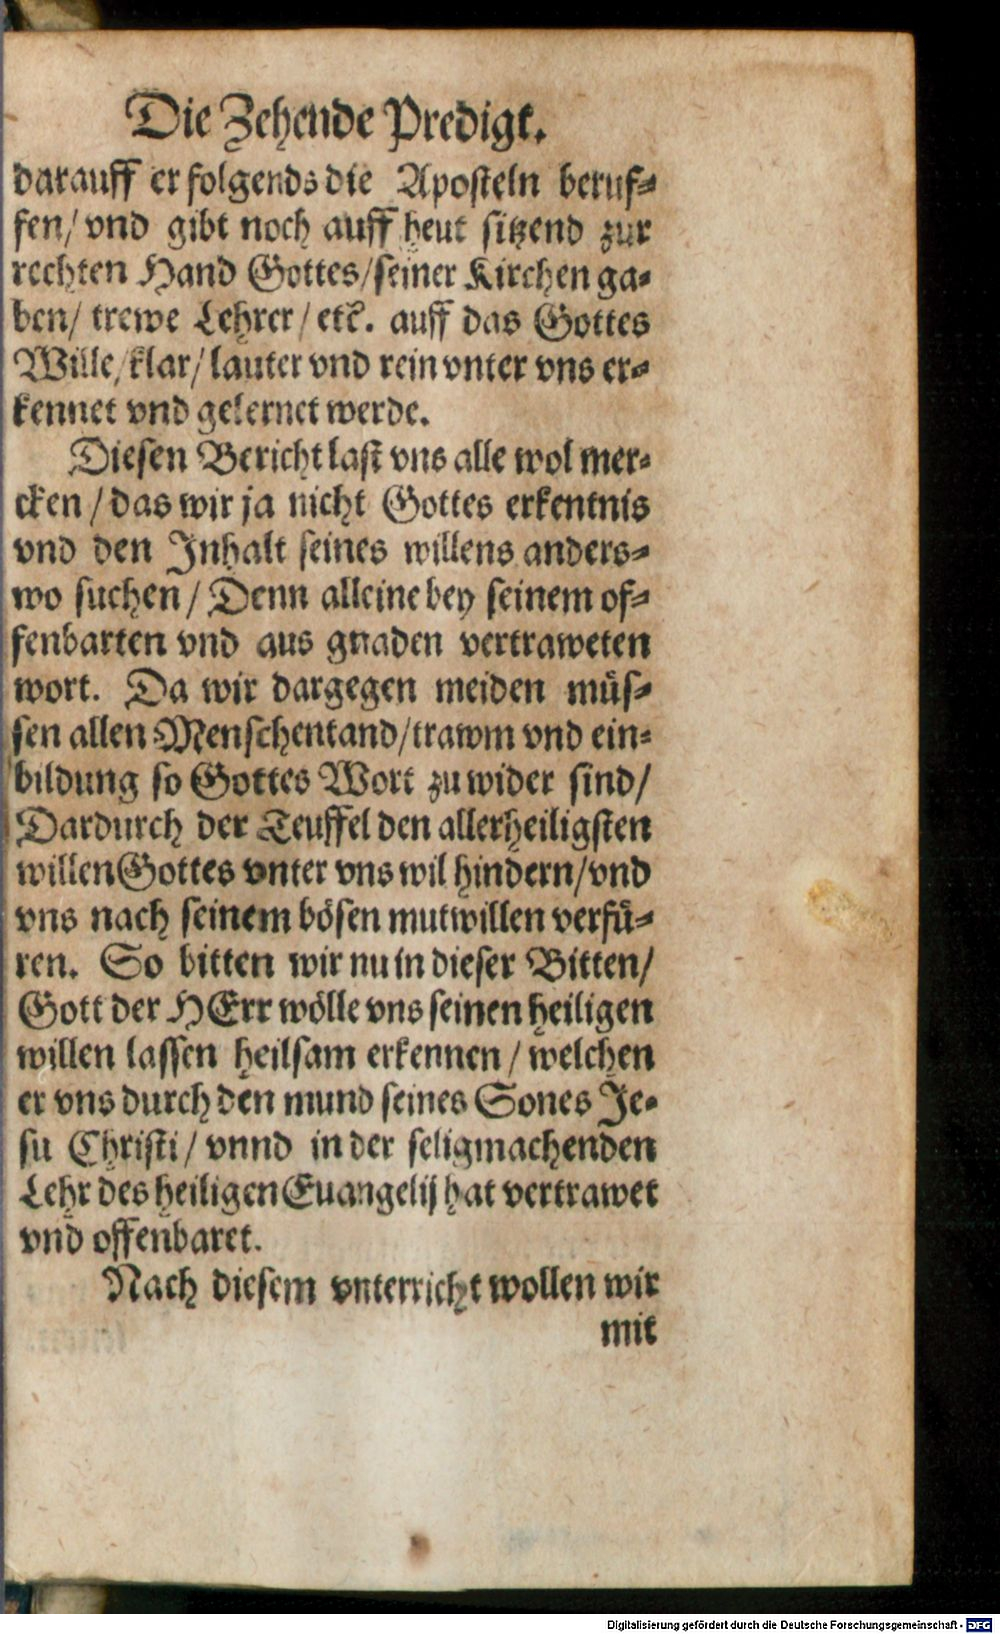 Die Zehende Predigt.
darauff er folgends die Aposteln beruf-
fen/ vnd gibt noch auff heut sitzend zur
rechten Hand Gottes/ seiner Kirchen ga-
ben/ trewe Lehrer/ etc. auff das Gottes
Wille/ klar/ lauter vnd rein vnter vns er-
kennet vnd gelernet werde.
Diesen Bericht last vns alle wol mer-
cken/ das wir ja nicht Gottes erkentnis
vnd den Inhalt seines willens anders-
wo suchen/ Denn alleine bey seinem of-
fenbarten vnd aus gnaden vertraweten
wort. Da wir dargegen meiden müs-
sen allen Menschentand/ trawm vnd ein-
bildung so Gottes Wort zu wider sind/
Dardurch der Teuffel den allerheiligsten
willen Gottes vnter vns wil hindern/ vnd
vns nach seinem bösen mutwillen verfü-
ren. So bitten wir nu in dieser Bitten/
Gott der HErr wölle vns seinen heiligen
willen lassen heilsam erkennen/ welchen
er vns durch den mund seines Sones Je-
su Christi/ vnnd in der seligmachenden
Lehr des heiligen Euangelij hat vertrawet
vnd offenbaret.
Nach diesem vnterricht wollen wir
mit
Digitalisierung gefördert durch die Deutsche Forschungsgemeinschaft - DFG